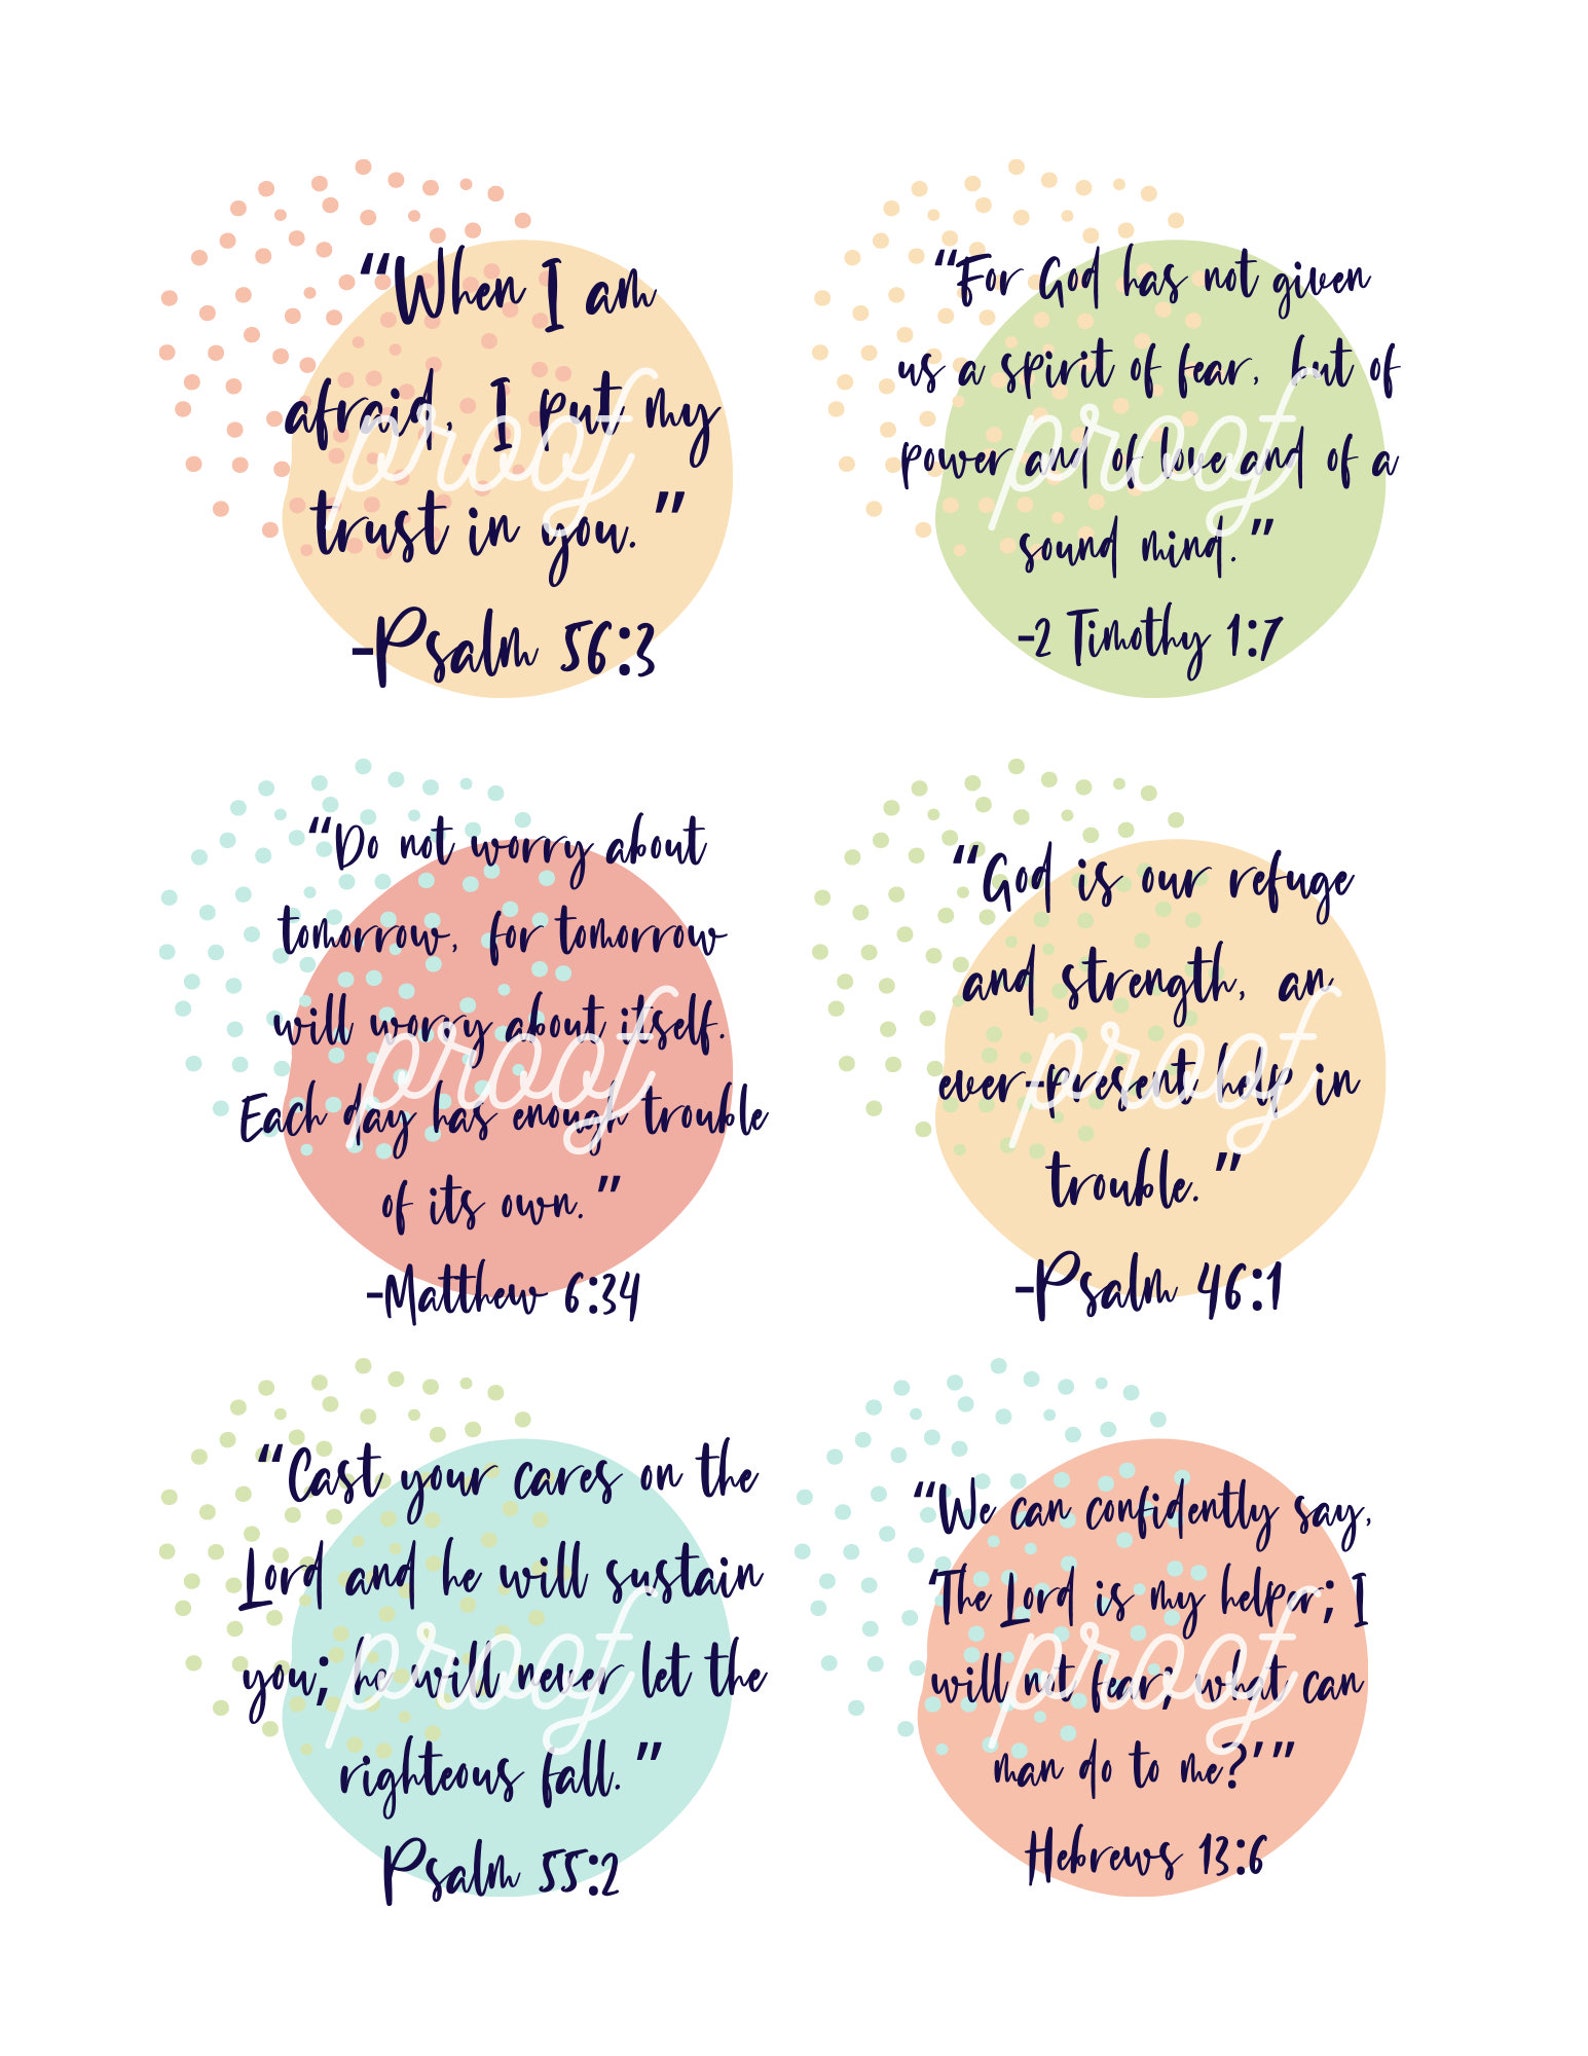 “When I am
afraid, I put my
proof
trust in you.”
-Psalm 56:3
“For God has not given
us a spirit of fear, but of
proof
power and of love and of a
sound mind.”
-2 Timothy 1:7
“Do not worry about
tomorrow, for tomorrow
will worry about itself.
proof
Each day has enough trouble
of its own.”
-Matthew 6:34
“God is our refuge
and strength, an
proof
ever-present help in
trouble.”
-Psalm 46:1
“Cast your cares on the
Lord and he will sustain
proof
you; he will never let the
righteous fall.”
Psalm 55:2
“We can confidently say,
‘The Lord is my helper; I
proof
will not fear; what can
man do to me?’”
Hebrews 13:6